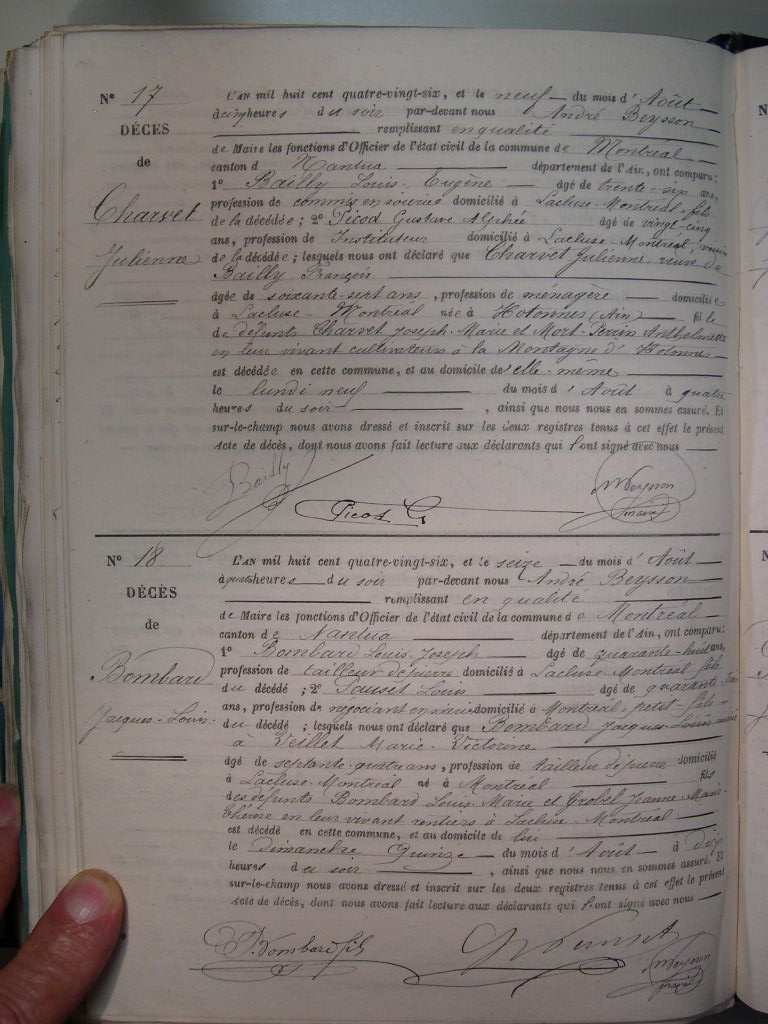 N° 17
DÉCES
de
Charvet
Julienne
L'AN mil huit cent quatre-vingt-six, et le neuf du mois d'Août
à cinq heures du soir par-devant nous André Beysson
remplissant en qualité
de Maire les fonctions d'Officier de l'état civil de la commune de Montréal
canton d Nantua département de l'Ain, ont comparu:
1° Bailly Louis Eugène âgé de trente-six ans,
profession de commis en soierie domicilié à Lacluse-Montréal fils
de la décédée; 2° Picod Gustave Alphée âgé de vingt-cinq
ans, profession de Instituteur domicilié à Lacluse-Montréal, voisin
de la décédée; lesquels nous ont déclaré que Charvet Julienne, veuve de
Bailly François
âgée de soixante-sept ans, profession de ménagère domiciliée
à Lacluse-Montréal née à Hotonnes (Ain) fille
de défunts Charvet Joseph-Marie et Mort-Perrin Anthelmette
en leur vivant cultivateurs à la Montagne d'Hotonnes
est décédée en cette commune, et au domicile de elle-même
le lundi neuf du mois d'Août à quatre
heures du soir, ainsi que nous nous en sommes assuré. Et
sur-le-champ nous avons dressé et inscrit sur les deux registres tenus à cet effet le présent
acte de décès, dont nous avons fait lecture aux déclarants qui l'ont signé avec nous
Bailly
Picod G
Beysson
maire
N° 18
DÉCÈS
de
Bombard
Jacques-Louis
L'AN mil huit cent quatre-vingt-six, et le seize du mois d'Août
à heures du soir par-devant nous André Beysson
remplissant en qualité
de Maire les fonctions d'Officier de l'état civil de la commune de Montréal
canton de Nantua département de l'Ain, ont comparu:
1° Bombard Louis-Joseph âgé de quarante-huit ans,
profession de tailleur de pierre domicilié à Lacluse-Montréal fils
du décédé; 2° Louis âgé de quarante
ans, profession de négociant domicilié à Montréal, petit-fils
du décédé; lesquels nous ont déclaré que Bombard Jacques-Louis
à Veillet Marie-Victorine
âgé de septante-quatre ans, profession de tailleur de pierre domicilié
à Lacluse-Montréal né à Montréal fils
des défunts Bombard Louis Marie et Crobel Jeanne-Marie
en leur vivant rentiers à Lacluse-Montréal
est décédé en cette commune, et au domicile de lui
le dimanche Quinze du mois d'Août à dix
heures du soir, ainsi que nous nous en sommes assuré. Et
sur-le-champ nous avons dressé et inscrit sur les deux registres tenus à cet effet le présent
acte de décès, dont nous avons fait lecture aux déclarants qui l'ont signé avec nous
Bombard fils
Beysson
maire